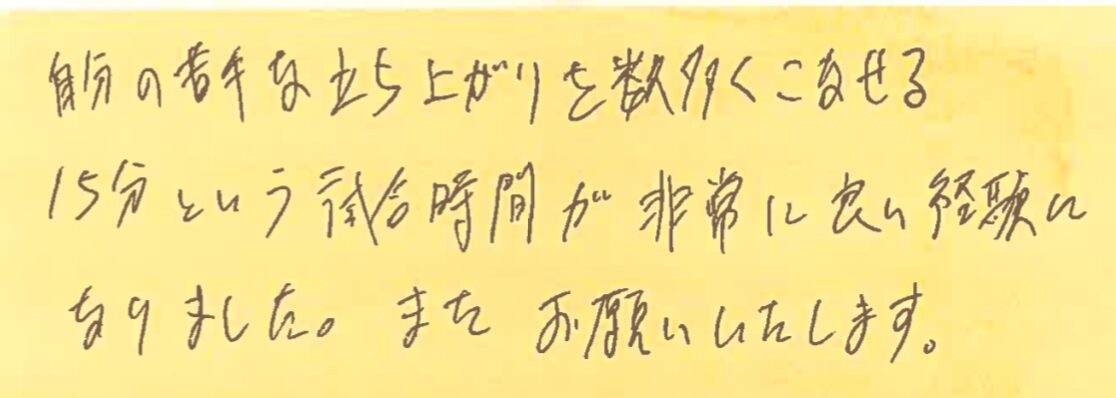 自分の苦手な立ち上がりを数多くこなせる
15分という試合時間が非常に良い経験に
なりました。またお願いいたします。